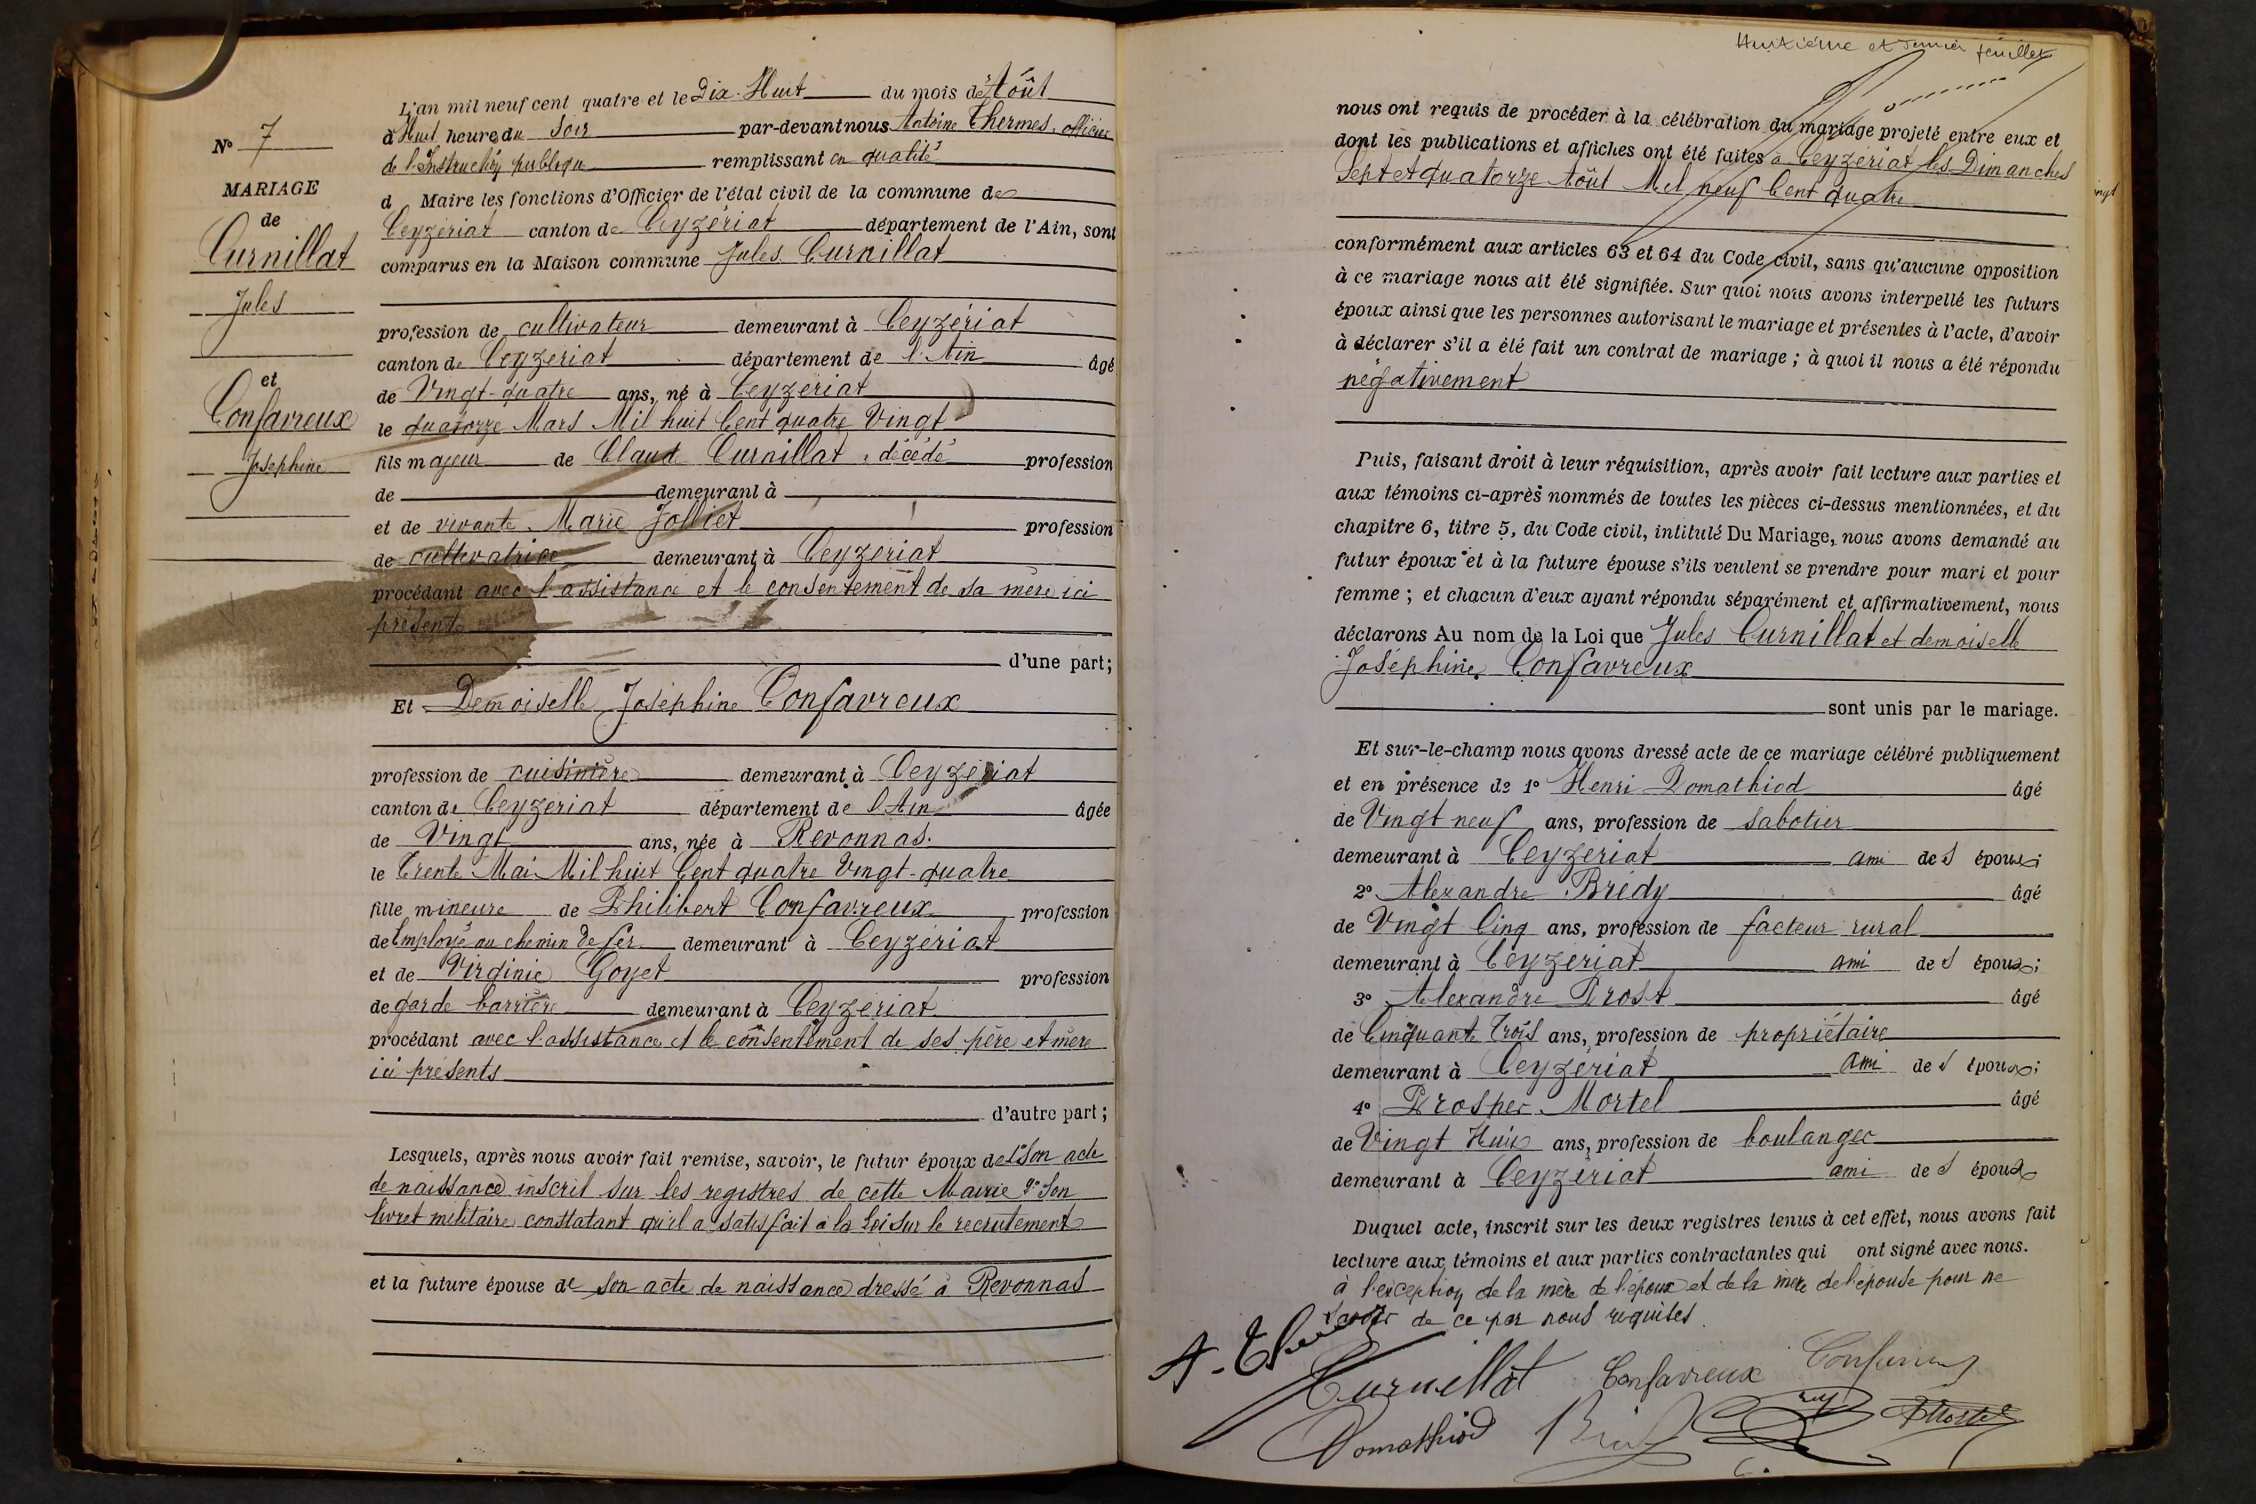 L'an mil neuf cent quatre et le Dix-Huit du mois de Août
à Huit heure du Soir par-devant nous Antoine Thermes, officier
de l'Instruction publique remplissant en qualité
d Maire les fonctions d'Officier de l'état civil de la commune de
Ceyzériat canton de Ceyzériat département de l'Ain, sont
comparus en la Maison commune Jules Curnillat
profession de cultivateur demeurant à Ceyzériat
canton de Ceyzériat département de l'Ain âgé
de Vingt-quatre ans, né à Ceyzériat
le quatorze Mars Mil huit Cent quatre Vingt
fils majeur de Claude Curnillat, décédé profession
de demeurant à
et de vivante Marie Jolliet profession
de cultivatrice demeurant à Ceyzériat
procédant avec l'assistance et le consentement de sa mère ici
présente
d'une part;
Et Demoiselle Joséphine Confavreux
profession de cuisinière demeurant à Ceyzériat
canton de Ceyzériat département de l'Ain âgée
de Vingt ans, née à Revonnas.
le Trente Mai Mil huit Cent quatre Vingt-quatre
fille mineure de Philibert Confavreux profession
de Employé au chemin de fer demeurant à Ceyzériat
et de Virginie Goyet profession
de garde barrière demeurant à Ceyzériat
procédant avec l'assistance et le consentement de ses père et mère
ici présents
d'autre part;
Lesquels, après nous avoir fait remise, savoir, le futur époux de 1° Son acte
de naissance inscrit sur les registres de cette Mairie 2° Son
livret militaire constatant qu'il a satisfait à la loi sur le recrutement
et la future épouse de son acte de naissance dressé à Revonnas
N° 7
MARIAGE
de
Curnillat
Jules
et
Confavreux
Joséphine
Huitième et dernier feuillet
nous ont requis de procéder à la célébration du mariage projeté entre eux et
dont les publications et affiches ont été faites à Ceyzériat les Dimanches
Sept et quatorze Août Mil neuf Cent quatre
conformément aux articles 63 et 64 du Code civil, sans qu'aucune opposition
à ce mariage nous ait été signifiée. Sur quoi nous avons interpellé les futurs
époux ainsi que les personnes autorisant le mariage et présentes à l'acte, d'avoir
à déclarer s'il a été fait un contrat de mariage; à quoi il nous a été répondu
négativement
Puis, faisant droit à leur réquisition, après avoir fait lecture aux parties et
aux témoins ci-après nommés de toutes les pièces ci-dessus mentionnées, et du
chapitre 6, titre 5, du Code civil, intitulé Du Mariage, nous avons demandé au
futur époux et à la future épouse s'ils veulent se prendre pour mari et pour
femme; et chacun d'eux ayant répondu séparément et affirmativement, nous
déclarons Au nom de la Loi que Jules Curnillat et demoiselle
Joséphine Confavreux
sont unis par le mariage.
Et sur-le-champ nous avons dressé acte de ce mariage célébré publiquement
et en présence de 1° Henri Domathiod âgé
de Vingt neuf ans, profession de sabotier
demeurant à Ceyzériat ami de s époux;
2° Alexandre Brédy âgé
de Vingt Cinq ans, profession de facteur rural
demeurant à Ceyzériat ami de s époux;
3° Alexandre Prost âgé
de Cinquante Trois ans, profession de propriétaire
demeurant à Ceyzériat ami de s époux;
4° Prosper Mortel âgé
de Vingt Huit ans, profession de boulanger
demeurant à Ceyzériat ami de s époux
Duquel acte, inscrit sur les deux registres tenus à cet effet, nous avons fait
lecture aux témoins et aux parties contractantes qui ont signé avec nous.
à l'exception de la mère de l'époux et de la mère de l'épouse pour ne
savoir de ce par nous requises.
A. Thermes
Curnillat Confavreux Confavreux
Domathiod